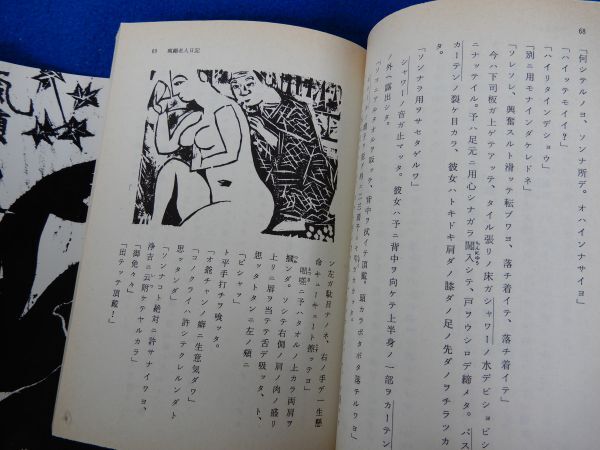 68
「何シテルノヨ、ソンナ所デ。オハインナサイヨ」
「ハイッテモイイ？」
「ハイリタインデショウ」
「別ニ用モナインダケレドネ」
「ソレソレ、興奮スルト滑ッテ転ブワヨ、落チ着イテ、落チ着イテ」
今ハ下司板ガ上ゲテアッテ、タイル張リノ床ガシャワーノ水デビショビシ
ニナッテイル。予ハ足元ニ用心シナガラ闖入シテ、戸ヲウシロデ締メタ。バス
カーテンノ裂ケ目カラ、彼女ハトキドキ肩ダノ膝ダノ足ノ先ダノヲチラッカ
「ソンナラ用ヲサセタゲルワ」
シャワーノ音ガ止マッタ。彼女ハ予ニ背中ヲ向ケテ上半身ノ一部ヲカーテン
ノ外ヘ露出シタ。
69 瘋癲老人日記
ン左ガ駄目ナノネ、右ノ手デ一生懸
命キューキュート擦ッテヨ」
咄嗟ニ予ハタオルノ上カラ両肩ヲ
摑ンダ。ソシテ右側ノ肩ノ肉ノ盛リ
上リニ唇ヲ当テテ舌デ吸ッタ、ト、
思ッタトタンニ左ノ頰ニ
「ピシャッ」
ト平手打チヲ喰ッタ。
「オ爺チャンノ癖ニ生意気ダワ」
「コノクライハ許シテクレルンダト
思ッタンダ」
「ソンナコト絶対ニ許サナイワヨ、
浄吉ニ云附ケテヤルカラ」
「御免々々」
「出テッテ頂戴！」